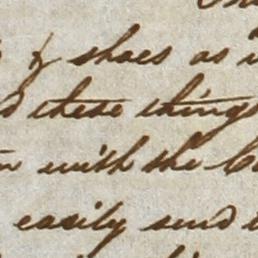 & shoes as
these things
with the
easily send